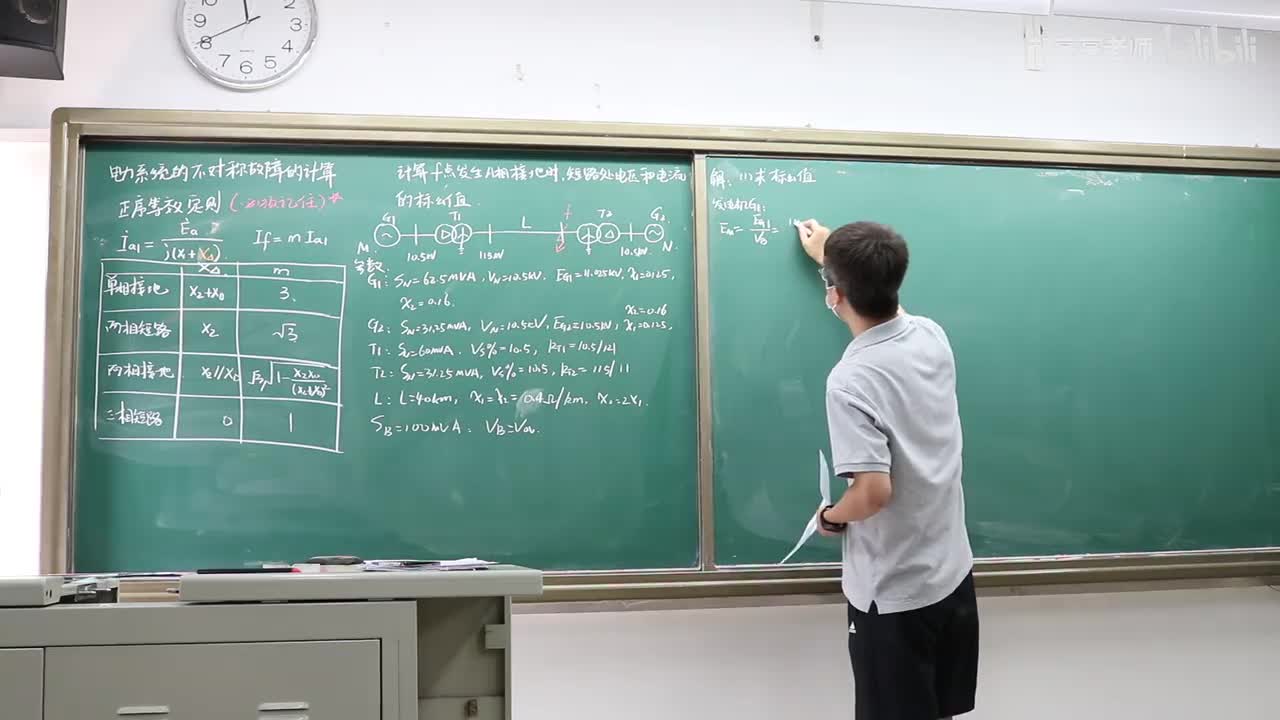 电力系统的不对称故障的计算
正序等效定则 (必须记住)*
İa1 = Ėa / j(X1 + XΔ) If = m Ia1
XΔ m
单相接地 X2+X0 3
两相短路 X2 √3
两相接地 X2//X0 √3 √(1 - X2X0/(X2+X0)²)
三相短路 0 1
计算f点发生A相接地时,短路处电压和电流
的标幺值.
G1 T1 L f T2 G2
M 10.5kV 115kV 10.5kV N
参数:
G1: SN=62.5MVA, VN=10.5kV, EG1=11.025kV, X1=0.125,
X2=0.16.
G2: SN=31.25MVA, VN=10.5kV, EG2=10.5kV, X1=0.125, X2=0.16
T1: SN=60MVA, Vs%=10.5, KT1=10.5/121
T2: SN=31.25MVA, Vs%=10.5, KT2=115/11
L: L=40km, X1=X2=0.4Ω/km, X0=2X1.
SB=100MVA, VB=Vav.
解: (1)求标幺值
发电机G1:
Em = EG1/VB =
12
10
9
8
7
6
5
4
3
2
老师 bilibili